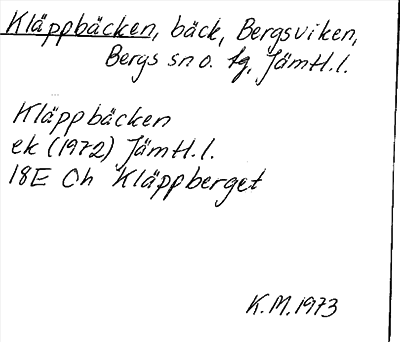 Kläppbäcken, bäck, Bergsviken,
Bergs sn o. tg, Jämtl.l.
Kläppbäcken
ek (1972) Jämtl.l.
18E Ch Kläppberget
K.M.1973